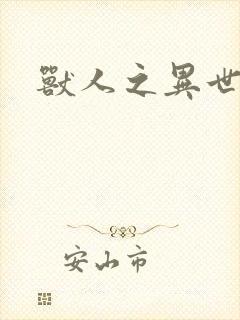 獸人之異世
安山市